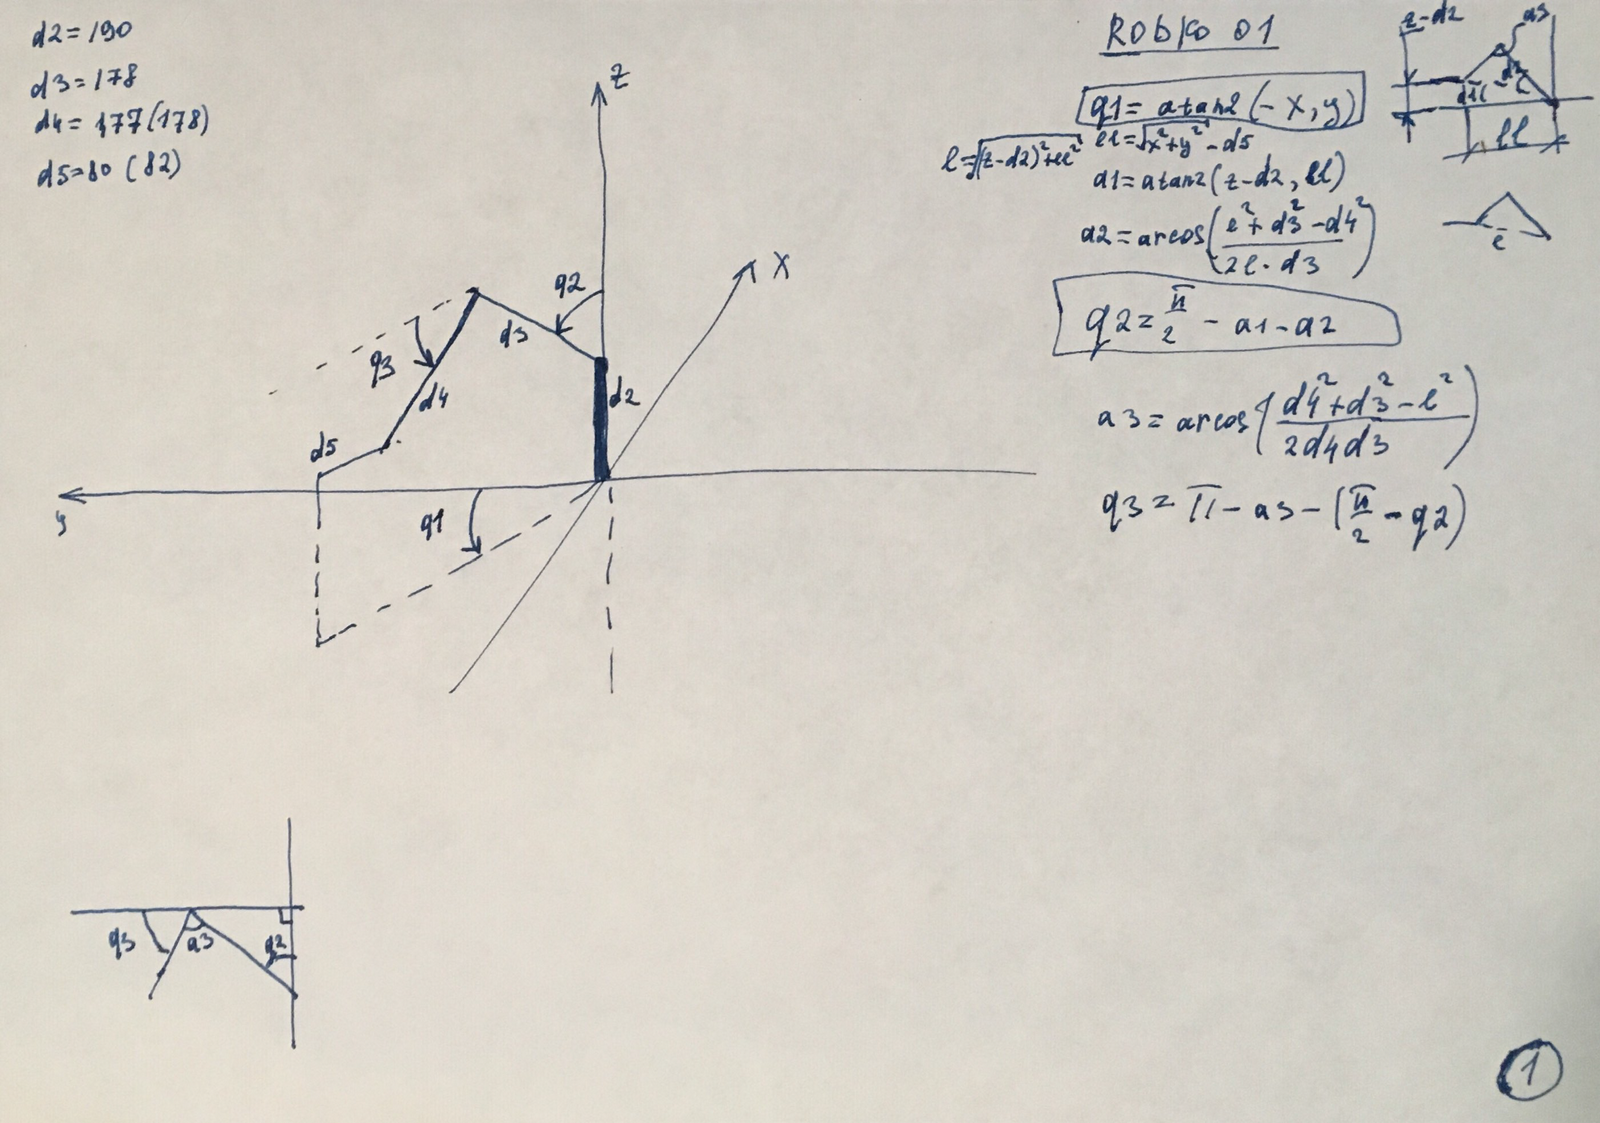 d2=190
d3=178
d4=177(178)
d5=80 (82)
z
x
q2
d3
q3
d4
d2
d5
y
q1
q3
a3
q2
Robko 01
q1= atan2(-x,y)
l=√(z-d2)²+ll²
ll=√x²+y² -d5
a1=atan2(z-d2, ll)
a2=arcos(l²+d3²-d4² / 2l·d3)
q2=π/2 - a1-a2
a3= arcos(d4²+d3²-l² / 2d4d3)
q3= π-a3-(π/2-q2)
z-d2
a3
ll
l
1